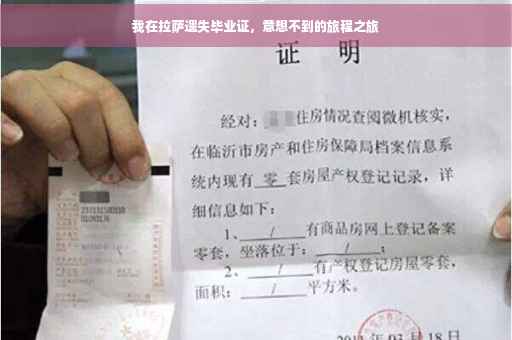 我在拉萨遗失毕业证，意想不到的旅程之旅
证 明
经对：住房情况查阅微机核实，
在临沂市房产和住房保障局档案信息系
统内现有 零 套房屋产权登记记录，详
细信息如下：
1、 / 有商品房网上登记备案
零套，坐落位于： / ；
2、 / 有产权登记房屋零套，
面积： / 平方米。
03月18日